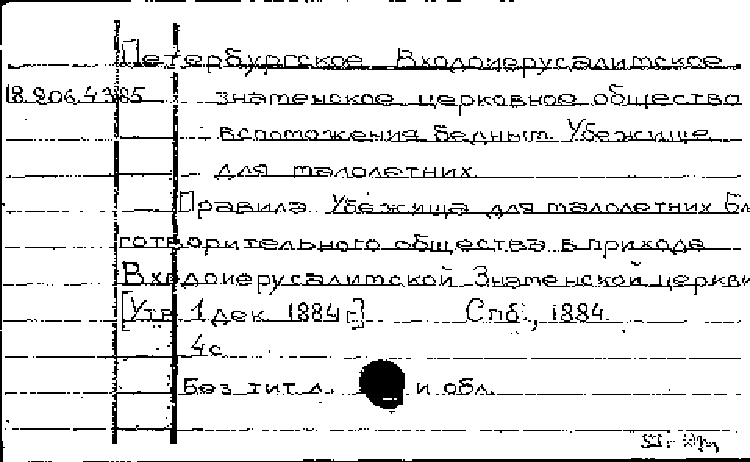 Петербургское Входоиерусалимское
18.206.4385 знаменское церковное общество
вспоможения бедным. Убежище
для малолетних.
Правила Убежища для малолетних бла
готворительного общества в приходе
Входоиерусалимской Знаменской церкви
[Утв. 1 дек. 1884 г.] Спб., 1884.
4с.
Без тит. л. и обл.